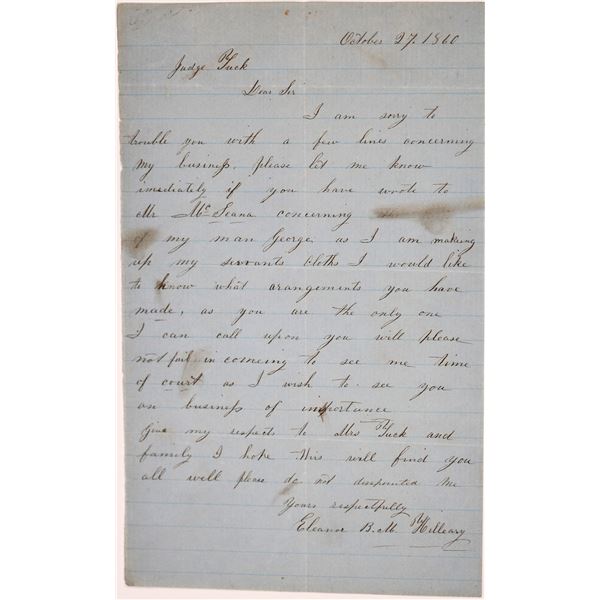 October 27. 1860
Judge Tuck
Dear Sir
I am sorry to
trouble you with a few lines concerning
my business, please let me know
imediately if you have wrote to
Mr McLeana concerning
of my man George, as I am making
up my servants cloths I would like
to know what arangements you have
made, as you are the only one
I can call upon you will please
not fail in comeing to see me time
of court as I wish to see you
on business of importance
Give my respects to Mrs Tuck and
family I hope this will find you
all well please do not dispointed me
Yours respectfully
Eleanor B. M. Hilleary